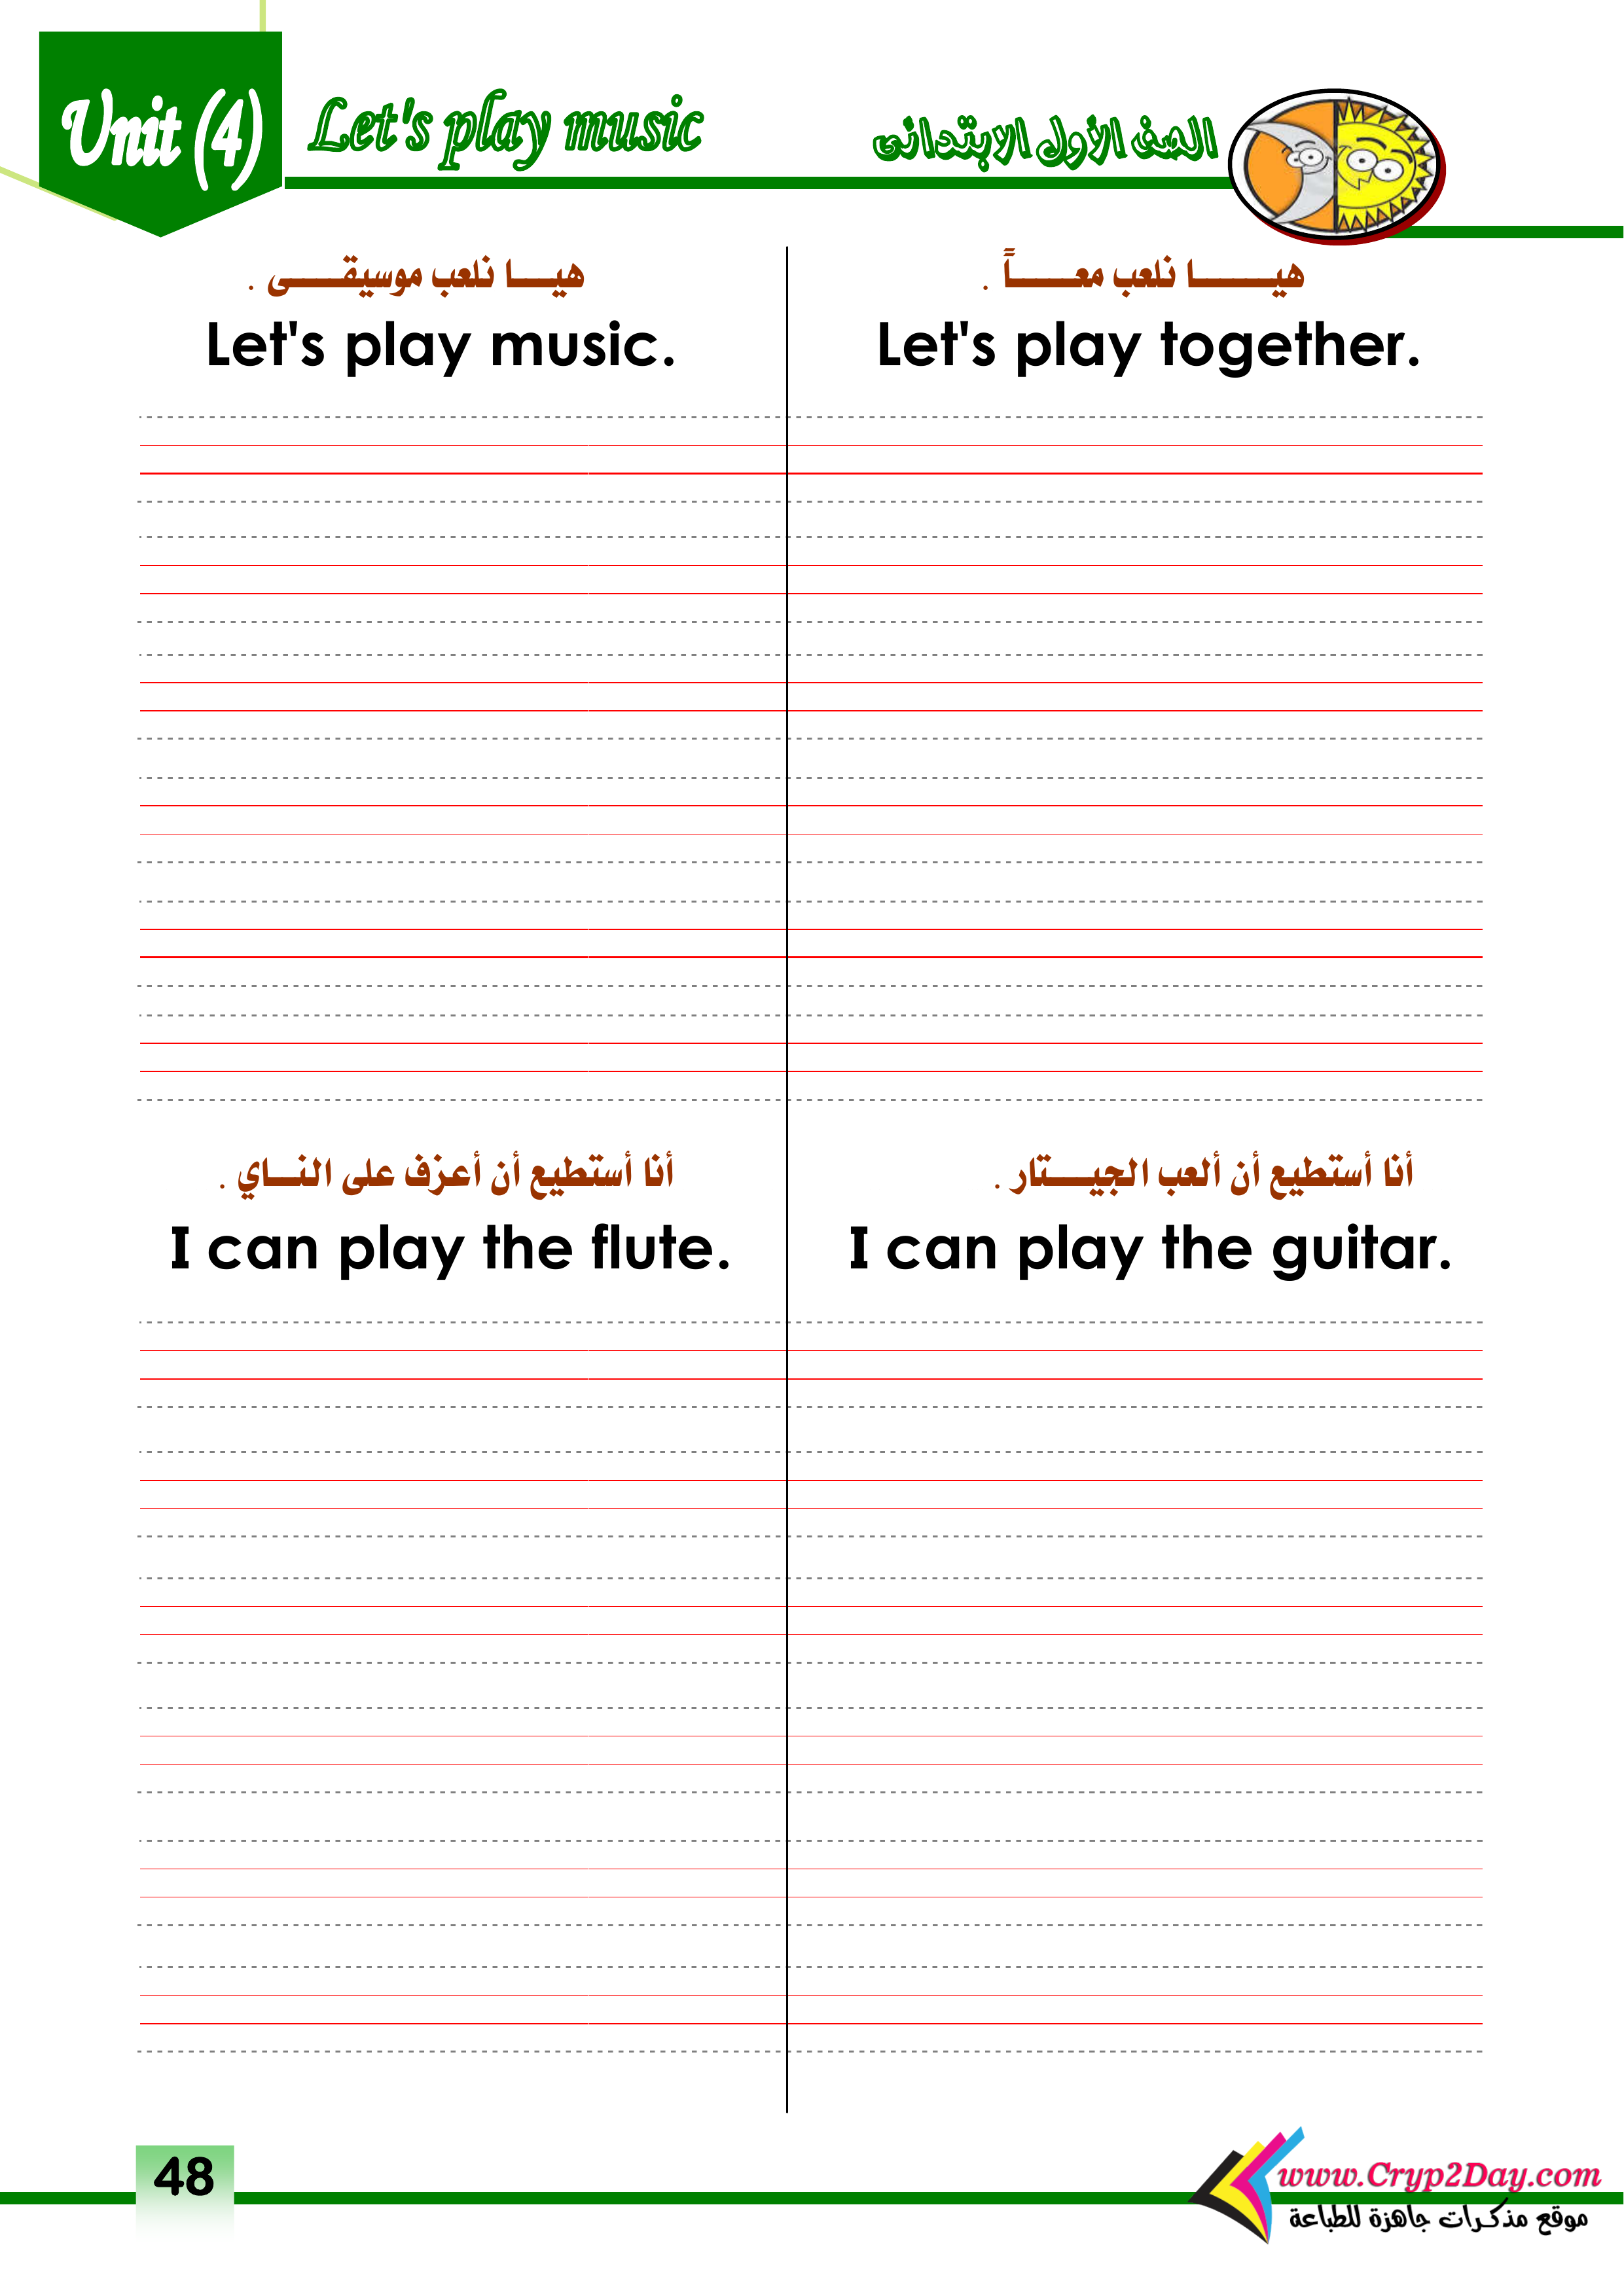 Unit (4)
Let's play music
الصف الأول الابتدائى
هيـــا نلعب موسيقـــى .
Let's play music.
هيـــا نلعب معـــاً .
Let's play together.
أنا أستطيع أن أعزف على النـــاي .
I can play the flute.
أنا أستطيع أن ألعب الجيـــتار .
I can play the guitar.
48
www.Cryp2Day.com
موقع مذكرات جاهزة للطباعة